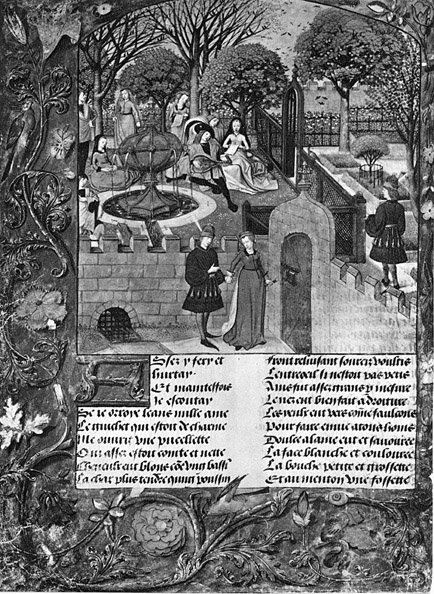 Assez y fery et
hurtay
Et maintesfois
Je escoutay
Se ie orroye leans mille ame
Le guichet qui estoit de charme
Me ouurit vne pucellette
Qui assez estoit cointe et nette
Cheueulx eut blons cõe vng bassi
La char plus tendre qung poussin
Front reluisant sourcis voultis
Lentroeil si nestoit pas petis
Ains fut assez grans p mesure
Le nez eut bien fait a droiture
Les yeulx eut vers cõme faulcons
Pour faire enuie a homs
Doulce alaine eut et sauouree
La face blanche et coulouree
La bouche petite et grossette
Et au menton vne fossette